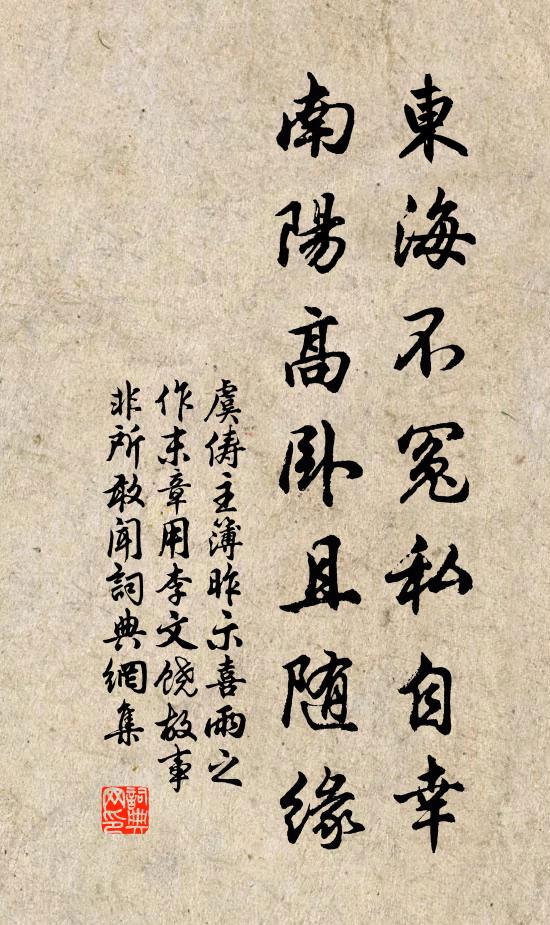 東海不冤私自幸
南陽高臥且随緣
虞儔主簿昨示喜雨之
作末章用李文饒故事
非所敢聞詞典網集
詞典网印